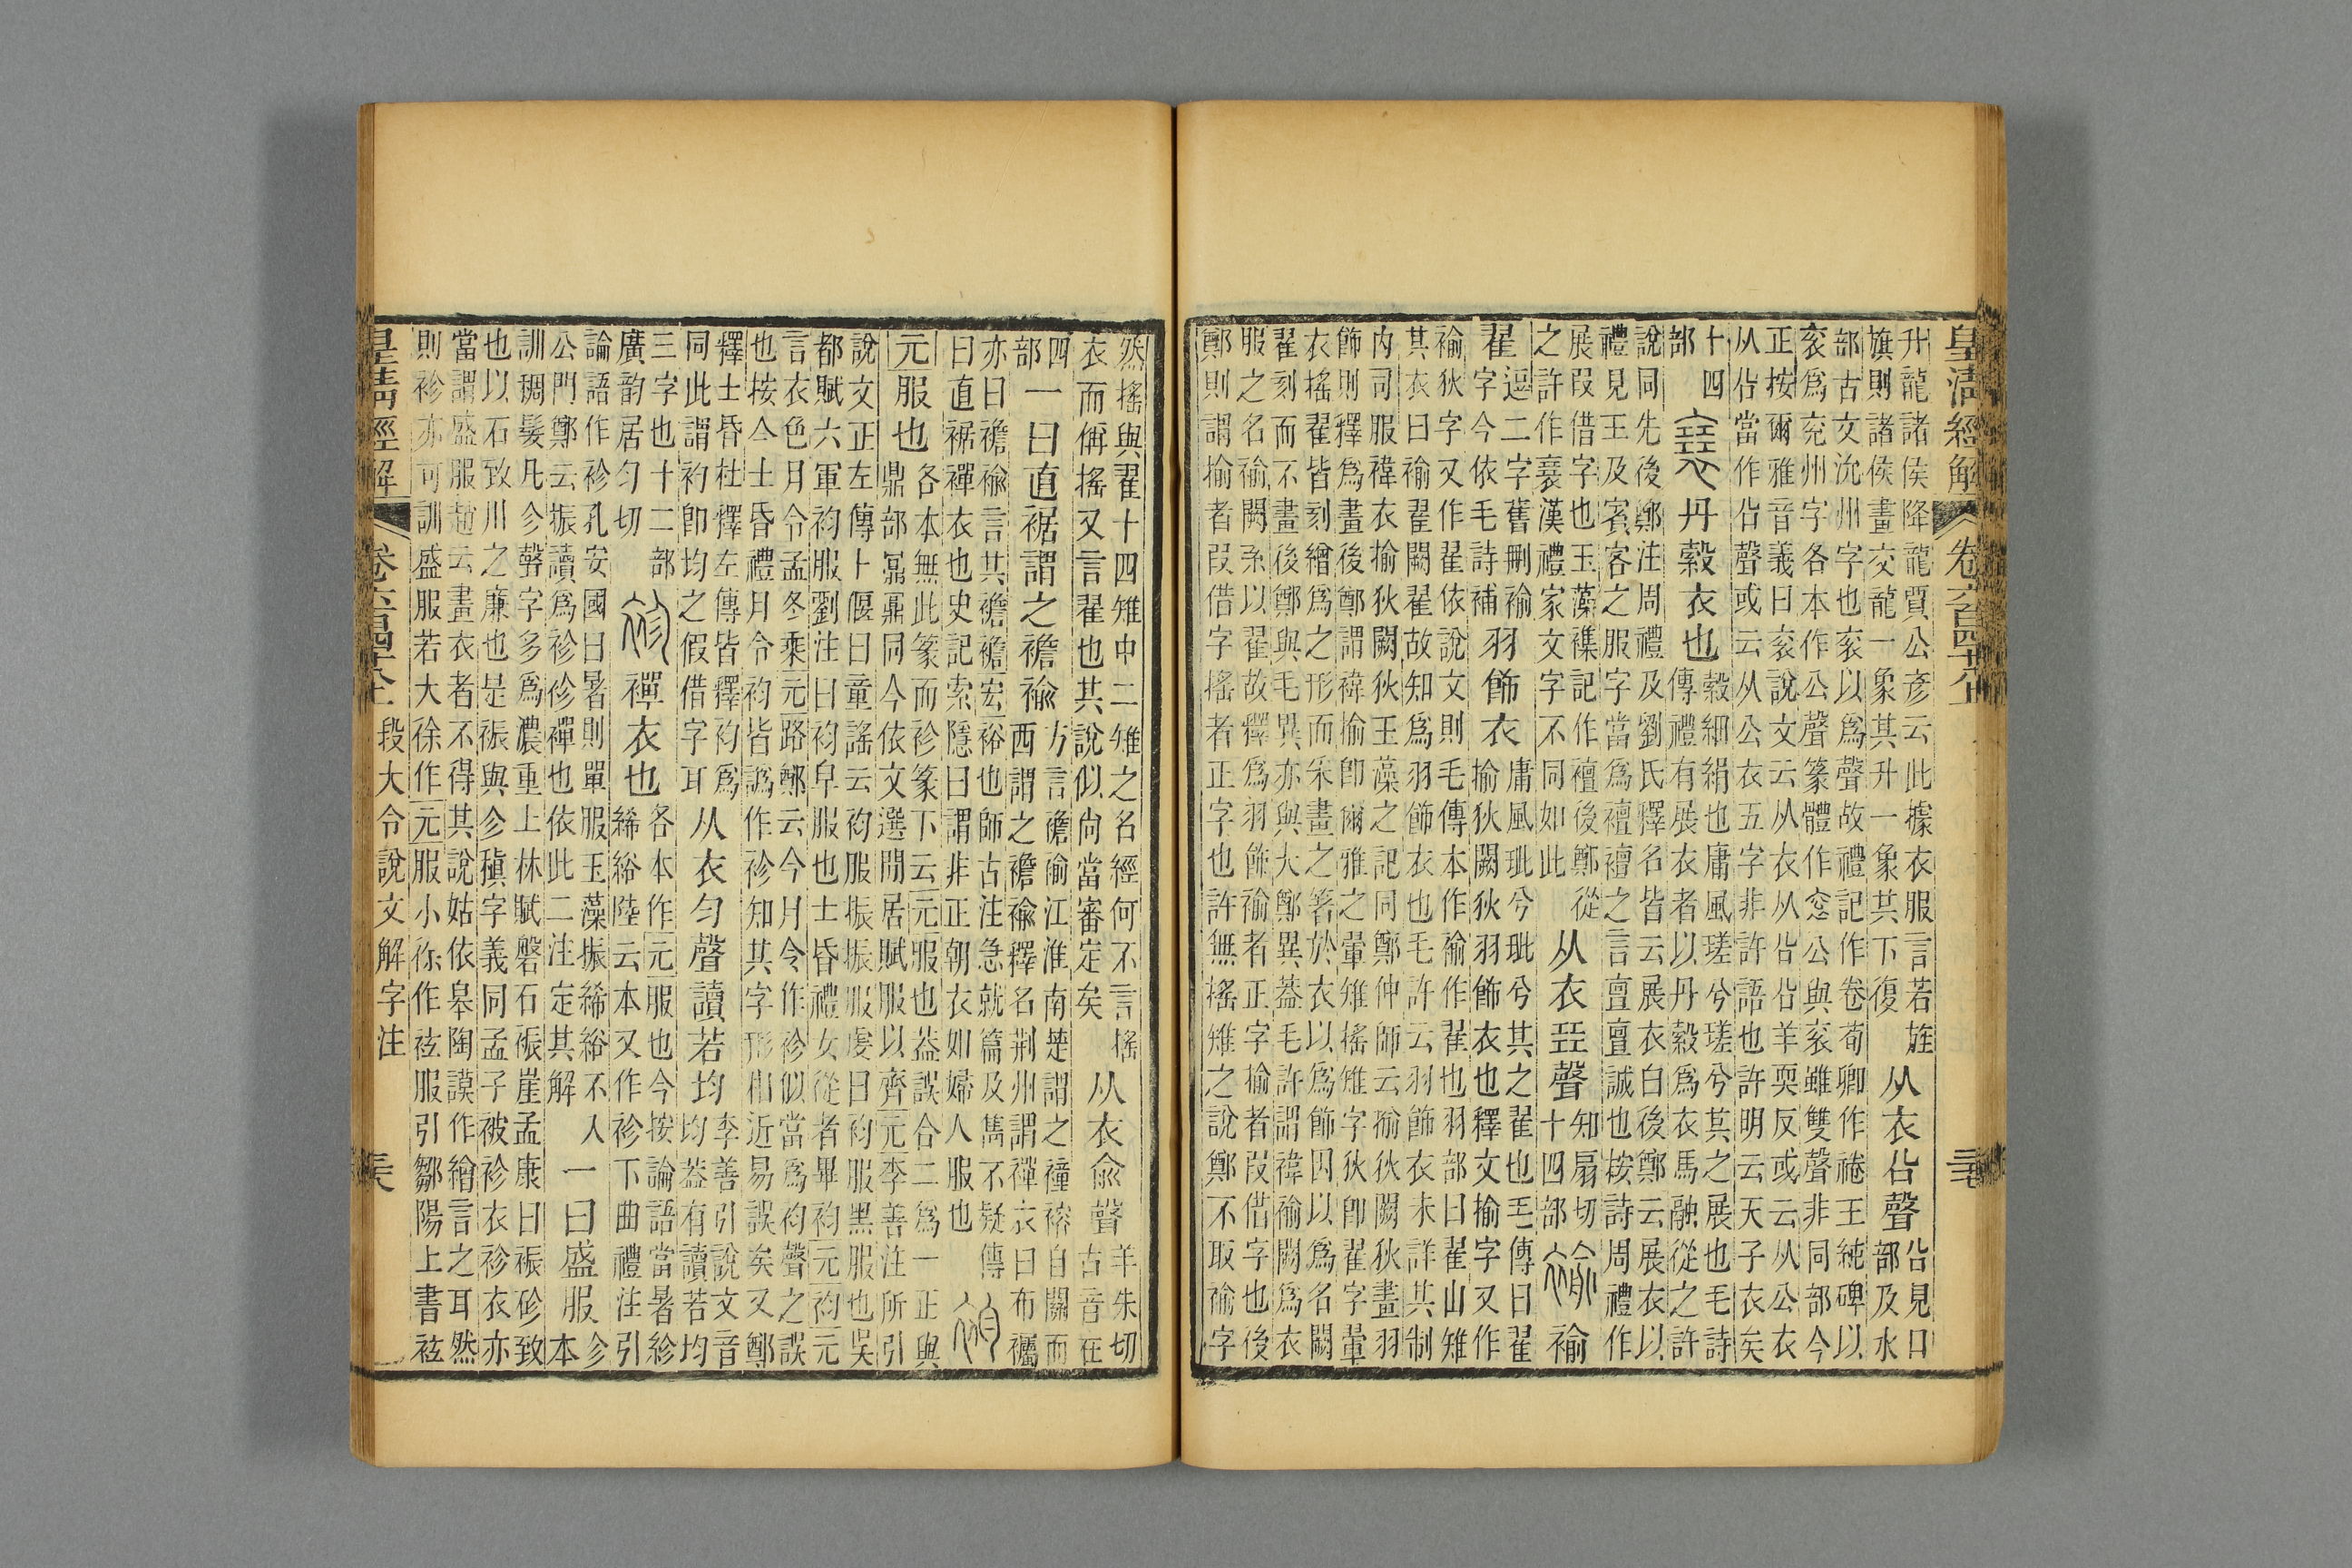 皇清經解 卷六百四十八上
升龍諸侯降龍賈公彥云此據衣服言若旌
旗則諸侯畫交龍一象其升一象其下復
从衣㕣聲
㕣見口
部及水
部古文沇州字也衮以爲聲故禮記作卷荀卿作裷王純碑以
衮爲兗州字各本作公聲篆體作㤀公與衮雖雙聲非同部今
正按爾雅音義曰衮說文云从衣从㕣㕣羊耎反或云从公衣
从㕣當作㕣聲或云从公衣五字非許語也許明云天子衣矣
十四
部
丹縠衣也
縠細絹也庸風瑳兮瑳兮其之展也毛詩
傳禮有展衣者以丹縠爲衣馬融從之許
說同先後鄭注周禮及劉氏釋名皆云展衣白後鄭云展衣以
禮見王及賓客之服字當爲襢襢之言亶亶誠也按詩周禮作
展叚借字也玉藻襍記作襢後鄭從
之許作襄漢禮家文字不同如此
从衣㠭聲
知扇切
十四部
褕
翟
逗二字舊刪褕
字今依毛詩補
羽飾衣
庸風玼兮玼兮其之翟也毛傳曰翟
揄狄闕狄羽飾衣也釋文揄字又作
褕狄字又作翟依說文則毛傳本作褕作翟也羽部曰翟山雉
其衣曰褕翟闕翟故知爲羽飾衣也毛許云羽飾衣未詳其制
内司服褘衣揄狄闕狄玉藻之記同鄭仲師云揄狄闕狄畫羽
飾則釋爲畫後鄭謂褘揄卽爾雅之翬雉搖雉字狄卽翟字翬
衣搖翟皆刻繒爲之形而采畫之箸於衣以爲飾因以爲名闕
翟刻而不畫後鄭與毛異亦與大鄭異葢毛許謂褘褕闕爲衣
服之名褕闕系以翟故釋爲羽飾褕者正字揄者叚借字也後
鄭則謂揄者叚借字搖者正字也許無搖雉之說鄭不取褕字
然搖與翟十四雉中二雉之名經何不言搖
衣而倂搖又言翟也其說似尙當審定矣
从衣俞聲
羊朱切
古音在
四
部
一曰直裾謂之襜褕
方言襜褕江淮南楚謂之𧝎褣自關而
西謂之襜褕釋名荆州謂襌衣曰布𧞫
亦曰襜褕言其襜襜宏裕也師古注急就篇及雋不疑傳
曰直裾襌衣也史記索隱曰謂非正朝衣如婦人服也
元服也
各本無此篆而袗篆下云元服也葢誤合二爲一正與
鼎部鼏鼐同今依文選閒居賦服以齊元李善注所引
說文正左傳卜偃曰童謠云袀服振振服虔曰袀服黑服也吳
都賦六軍袀服劉注曰袀皁服也士昏禮女從者畢袀元袀元
言衣色月令孟冬乘元路鄭云今月令作袗似當爲袀聲之誤
也按今士昏禮月令袀皆譌作袗知其字形相近易誤矣又鄭
釋士昏杜釋左傳皆釋袀爲
同此謂袀卽均之假借字耳
从衣勻聲讀若均
李善引說文音
均葢有讀若均
三字也十二部
廣韵居勻切
襌衣也
各本作元服也今按論語當暑紾
絺綌陸云本又作袗下曲禮注引
論語作袗孔安國曰暑則單服玉藻振絺綌不入
公門鄭云振讀爲袗袗襌也依此二注定其解
一曰盛服
㐱
本
訓稠髮凡㐱聲字多爲濃重上林賦磐石裖崖孟康曰裖砂致
也以石致川之廉也是裖與㐱稹字義同孟子被袗衣袗衣亦
當謂盛服趙云畫衣者不得其說姑依皋陶謨作繪言之耳然
則袗亦可訓盛服若大徐作元服小徐作袨服引鄒陽上書袨
皇清經解 卷六百四十八上 段大令說文解字注